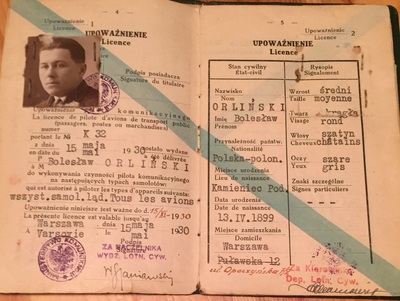 1
UPOWAŻNIENIE
Licence
Podpis posiadacza
Signature du titulaire
Upoważnienie komunikacyjnego
La licence de pilote d'avions de transport public
(passagers, postes ou marchandises)
Numer
portant le № K 32
z dnia 15 maja 1930 zostało wydane
du mai a été délivrée
P. Bolesław ORLIŃSKI
M.
do wykonywania czynności pilota komunikacyjnego
na następujących typach samolotów:
qui est autorisé à piloter les types d'appareils suivants:
wszyst.samol.ląd. Tous les avions
Upoważnienie niniejsze jest ważne do d. 15/XI-1930
La présente licence est valable jusqu'au
Warszawa 15 maja
Varsovie le mai 1930
Podpis
ZA NACZELNIKA
WYDZ. LOTN. CYW.
5
2
UPOWAŻNIENIE
Licence
Stan cywilny
État-civil
Rysopis
Signalement
Nazwisko
Nom
ORLIŃSKI
Imię
Prénom
Bolesław
Przynależność państw.
Nationalité
Polska-polon.
Miejsce urodzenia
Lieu de naissance
Kamieniec Pod.
Data urodzenia
Date de naissance
13.IV.1899
Miejsce zamieszkania
Domicile
Warszawa
Puławska 12
Wzrost średni
Taille moyenne
Twarz okrągła
Visage rond
Włosy szatyn
Cheveux châtains
Oczy szare
Yeux gris
Znaki szczególne
Signes particuliers
Za Kierownika
Dep. Lotn. Cyw.